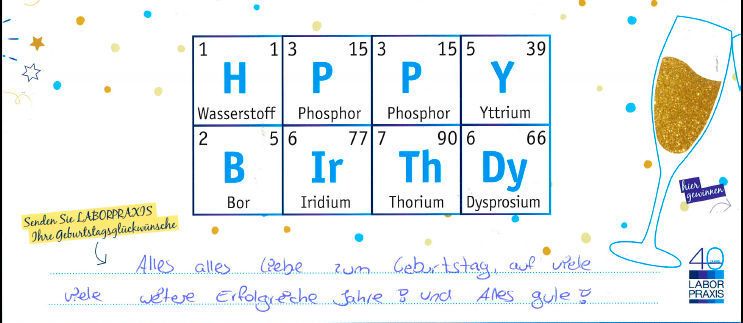 1 1 3 15 3 15 5 39
H P P Y
Wasserstoff Phosphor Phosphor Yttrium
2 5 6 77 7 90 6 66
B Ir Th Dy
Bor Iridium Thorium Dysprosium
hier
gewinnen
Senden Sie LABORPRAXIS
Ihre Geburtstagsglückwünsche
Alles alles Liebe zum Geburtstag, auf viele
viele weitere Erfolgreiche Jahre! und Alles gute!
40
LABOR
PRAXIS